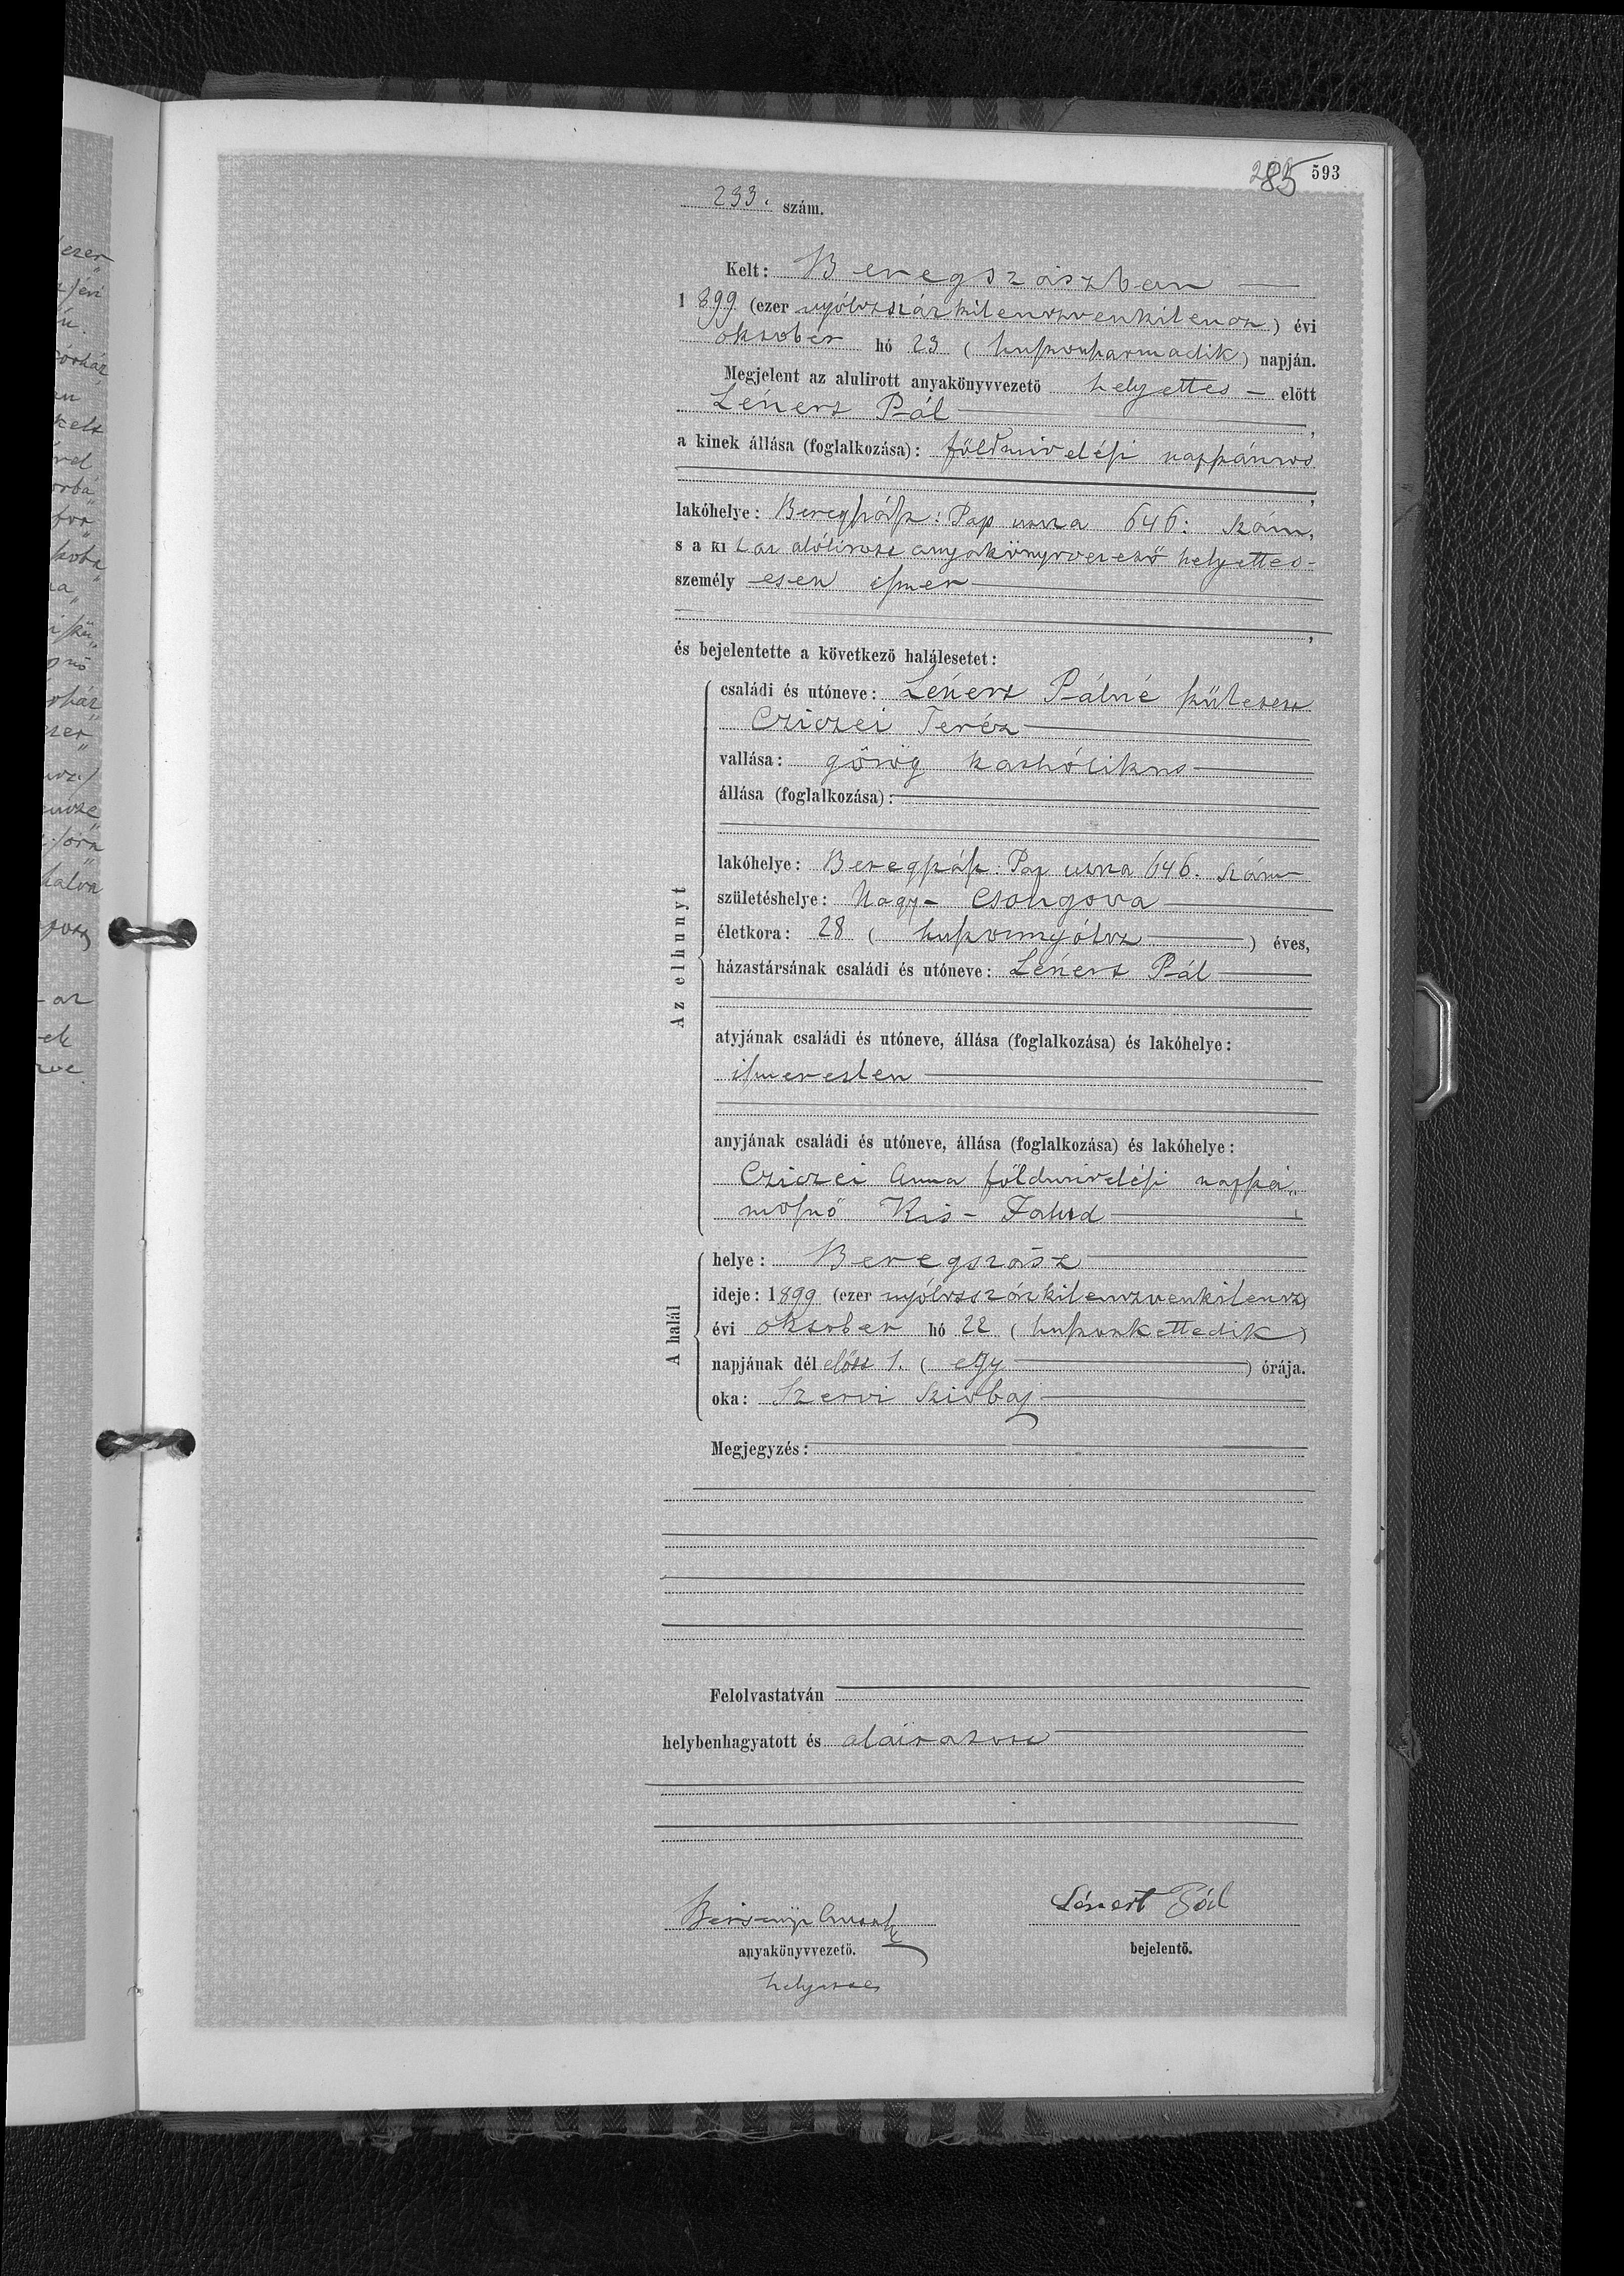 285 593
233. szám.
Kelt: Beregszászban
1899 (ezer nyólczszázkilenczvenkilencz) évi
október hó 23 (huszonharmadik) napján.
Megjelent az alulirott anyakönyvvezető helyettes előtt
Lénert Pál,
a kinek állása (foglalkozása): földmivelési napszámos
,
lakóhelye: Beregszász: Pap utcza 646: szám,
s a kit az alólirott anyakönyvvezető helyettes
személyesen ismer
,
és bejelentette a következő halálesetet:
Az elhunyt
családi és utóneve: Lénert Pálné született
Cziczei Teréz
vallása: görög kathólikus
állása (foglalkozása):
lakóhelye: Beregszász: Pap utcza 646. szám
születéshelye: Nagy-Csongova
életkora: 28 (huszonnyólcz) éves,
házastársának családi és utóneve: Lénert Pál
atyjának családi és utóneve, állása (foglalkozása) és lakóhelye:
ismeretlen
anyjának családi és utóneve, állása (foglalkozása) és lakóhelye:
Cziczei Anna földmivelési napszá„
mosnő Kis-
A halál
helye: Beregszász
ideje: 1899 (ezer nyólczszázkilenczvenkilencz)
évi október hó 22 (huszonkettedik)
napjának délelőtt 1. (egy) órája.
oka: Szervi szivbaj
Megjegyzés:
Felolvastatván
helybenhagyatott és aláiratott
Lénert Pál
anyakönyvvezető. bejelentő.
helyettes